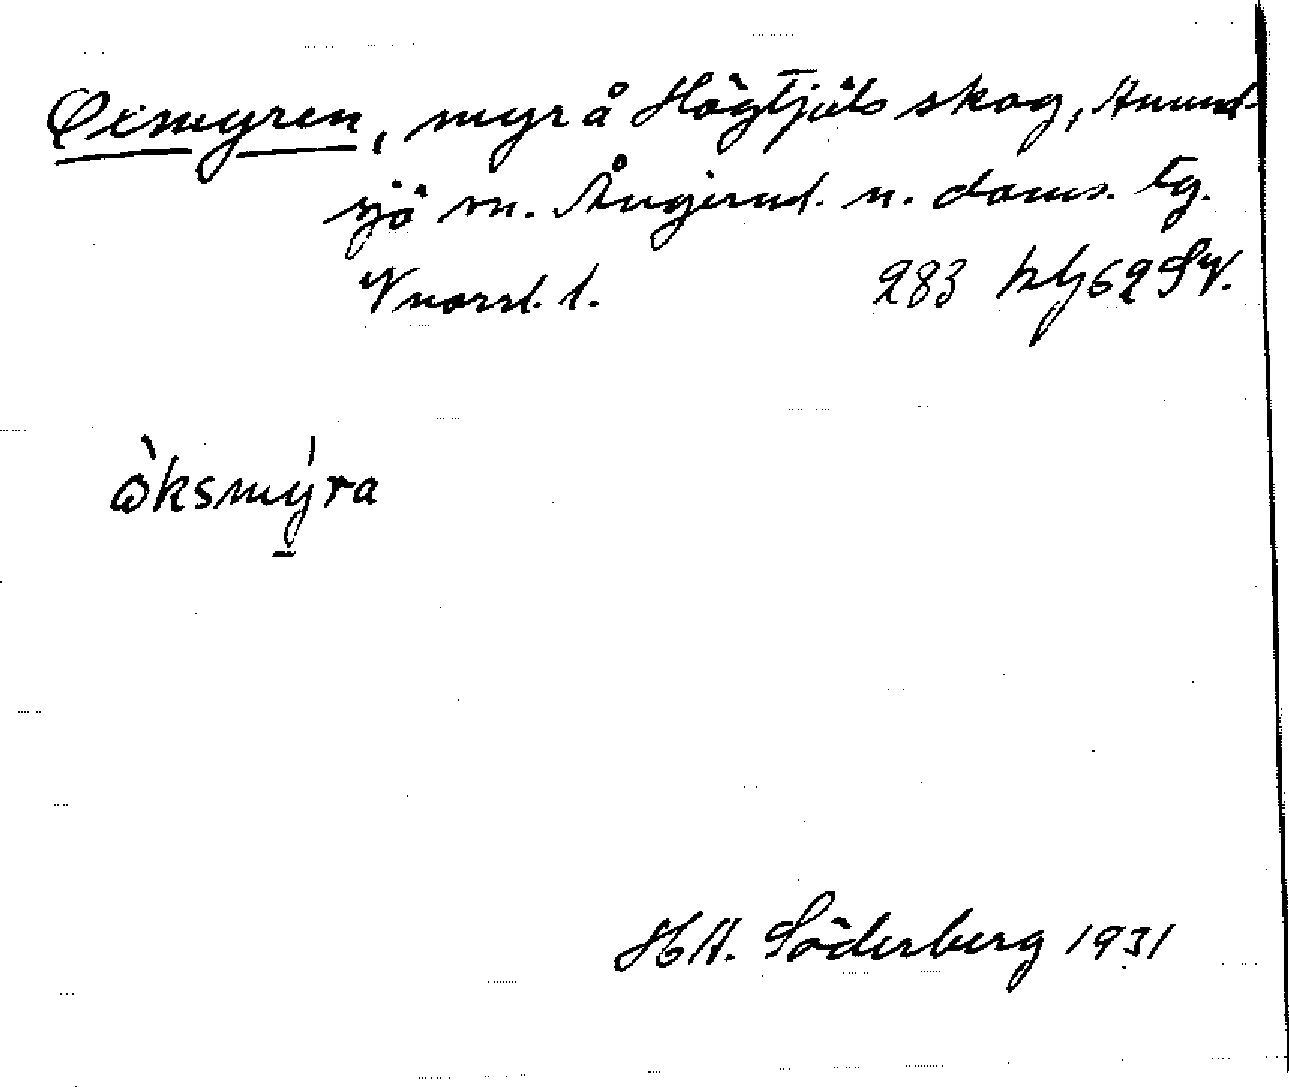 Oxmyren, myr å Högtjäls skog, Anund-
sjö sn. Ångerml. n. doms. tg.
Vnorrl. l. 283 62 SV.
òksmýra
H A. Söderberg 1931